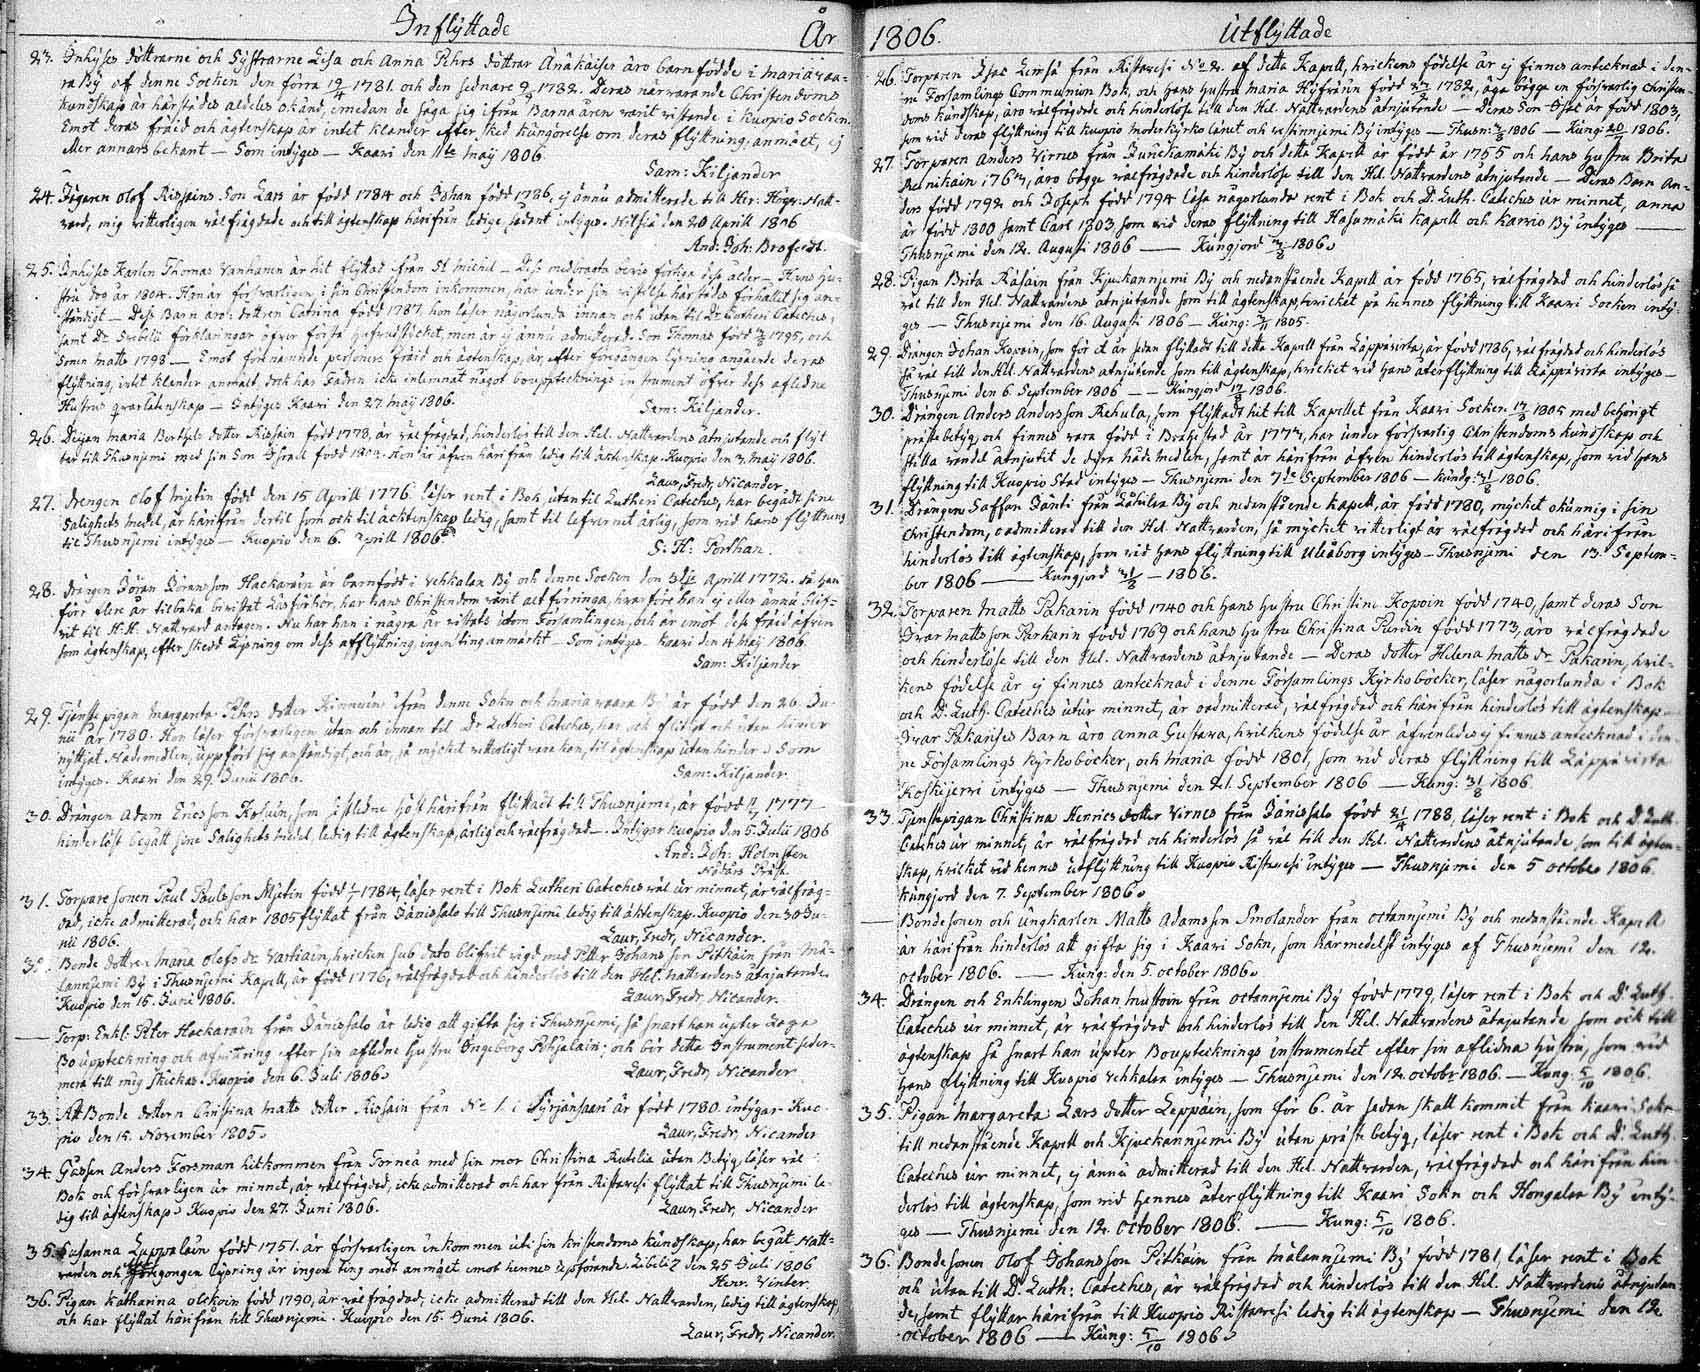 Inflyttade
År
23. Inhyses döttrarne och Systrarne Lisa och Anna Pehrs döttrar Änäkäiser äro barnfödde i Mariavaa-
ra By af denne Socken den förra 19/4 1781. och den sednare 9/9 1782. Deras närvarande Christendoms
kundskap är härstädes aldeles okänd, emedan de säga sig ifrån Barnaåren varit vistande i Kuopio Socken.
Emot deras fräjd och ägtenskap är intet klander efter sked kungörelse om deras flyttning, anmält, ej
eller annars bekant — Som intyges — Kaavi den 11te Maij 1806.
Sam: Kiljander
24. Ägaren Olof Rissains Son Lars är född 1784 och Johan född 1786, ej ännu admitterade till Her: Högv: Natt-
vard, mig vitterligen välfrägdade och till ägtenskap härifrån ledige, sådant intyges. Nilsiä den 20 Aprill 1806
And: Joh: Brofeldt.
25. Inhyses Karlen Thomas Vanhanen är hit flyttad ifrån St Michel — Dess medbragta bevis förtiga dess ålder — Hans Hu-
stru dog år 1804. Han är försvarligen i sin Christendom inkommen, har under sin vistelse härstädes förhållit sig an-
ständigt — Dess Barn äro: dottren Catrina född 1787, hon läser någorlunda innan och utan til Dr Lutheri Cateches,
samt Dr Svebelii förklaringar öfver första hufvudstycket, men är ej ännu admitterad. Son Thomas född 1795, och
Sonen Matts 1798 — Emot förenämnde personers fräid och ägtenskap, är, efter föregången lysning angående deras
flyttning, intet klander anmält, dock har Fadren icke inlemnat något bouppteknings instrument öfver dess aflidne
Hustrus qvarlåtenskap — Intyges Kaavi den 27 Maij 1806.
Sam: Kiljander.
26. Deijan Maria Berthels dotter Rissain född 1778, är välfrägdad, hinderlös till den Hel. Nattvardens åtnjutande och flyt
tar till Thusnjemi med sin Son Israel född 1802. Hon är äfven härifrån ledig till äktenskap. Kuopio den 3 Maij 1806.
Laur, Fredr, Nicander
27. Drengen Olof Mjetin född den 15 Aprill 1776. läser rent i Bok, utantil Lutheri Cateches, har begådt sine
Salighets medel, är härifrån dertil som ock til äcktenskap ledig, samt til lefvernet ärlig, som vid hans flyttning
til Thusnjemi intyges — Kuopio den 6. Aprill 1806.
S: H: Porthan.
28. Drängen Jöran Jöransson Hackarain är barnfödd i Vehkalax By och denne Socken den Aprill 1772. då han
förr flere år tilbaka bivistat Läsförhör, har hans Christendom varit alt för ringa, hvarföre han ej eller ännu blif-
vit til H. H. Nattvard antagen. Nu har han i några år vistats utom Församlingen, och är emot dess fräid äfven
som ägtenskap, efter skedd Lysning om dess afflyttning, ingen ting anmärkt — Som intyges — Kaavi den 4 Maij 1806.
Sam: Kiljander
29. Tjenste pigan Margareta Pehrs dotter Kinnuin ifrån denne Sokn och Mariavaara By är född den 26. Ju-
nii år 1780. Hon läser försvarligen utan och innan til Dr Lutheri Cateches, har ock flitigt och utan hinder
nyttjat Nådemedlen, uppfört sig anständigt, och är, så mycket vitterligt vara kan, til ägtenskap utan hinder. Som
intyges. Kaavi den 29. Junii 1806.
Sam: Kiljander
30. Drängen Adam Ericsson Kosuin, som sistledne höst härifrån flyttadt till Thusnjemi, är född 1777
hinderlöst begått sine Salighets medel, ledig till ägtenskap, ärlig och välfrägdad — Intygar Kuopio den 5. Julii 1806
And: Joh: Holmsten
31. Torpare sonen Paul Paulsson Mjetin född 1784, läser rent i Bok Lutheri Cateches väl ur minnet, är välfräg-
dad, icke admitterad, och har 1805 flyttat från Jänissalo till Thusnjemi ledig till äktenskap. Kuopio den 30 Ju-
nii 1806.
Laur, Fredr, Nicander.
32. Bonde dottren Maria Olofs dr Vartiain, hvicken sub dato blifvit vigd med Petter Johansson Pitkäin från Mä-
lannjemi By i Thusnjemi Kapell, är född 1776, välfrägdad och hinderlös till den Hel. Nattvardens åtnjutande.
Kuopio den 15. Junii 1806.
Laur, Fredr, Nicander.
— Torp: Enkl: Peter Hackarain från Jänissalo är ledig att gifta sig i Thusnjemi, så snart han upter Laga
Bo uppteckning och afwittring efter sin aflidne Hustru Ingeborg Pohjalain; och bör detta Instrument seder-
mera till mig skickas. Kuopio den 6. Juli 1806.
Laur, Fredr, Nicander
33. Att Bonde dottern Christina Matts dotter Rissain från No 1. i Syrjänsaari är född 1780. intygar Kuo-
pio den 15. November 1805.
Laur, Fredr, Nicander
34. Gåssen Anders Forsman hitkommen från Torneå med sin mor Christina Rutilia utan Betyg, läser väl i
Bok och försvarligen ur minnet, är välfrägdad, icke admitterad och har från Ristavesi flyttat till Thusnjemi le-
dig till ägtenskap. Kuopio den 27. Junii 1806.
Laur, Fredr, Nicander
35. Susanna Luppalain född 1751. är försvarligen inkommen uti sin kristendoms kundskap, har begåt Natt-
varden och föregongen Lysning är ingen ting ondt anmält emot hennes upförande. Libelitz den 25 Juli 1806
Henr. Winter.
36. Pigan Katharina Olckoin född 1790, är välfrägdad, icke admitterad till den Hel. Nattvarden, ledig till ägtenskap,
och har flyttat härifrån till Thusnjemi. Kuopio den 15. Junii 1806.
Laur, Fredr, Nicander.
1806.
Utflyttade
26. Torparen Isac Lemså från Ristavesi No 2. af detta Kapell, hvickens födelse år ej finnes antecknad i den-
ne Församlings Communion Bok, och hans Hustru Maria Hyfvärin född 1782, äga bägge en försvarlig christen-
doms kundskap, äro välfrägdade och hinderlöse till den Hel. Nattvardens åtnjutande — Deras Son Isac är född 1803,
som vid deras flyttning till Kuopio Moderkyrko länet och Vestinnjemi By intyges — Thusn: 1806 — Kung: 1806.
27. Torparen Anders Virnes från Jurickamäki By och detta Kapell är född år 1755 och hans Hustru Brita
Reinikain 1763, äro bägge välfrägdade och hinderlöse till den Hel. Nattvardens åtnjutande — Deras Barn An-
ders född 1792 och Joseph född 1794 läsa någorlunda rent i Bok och D. Luth. Cateches ur minnet, Anna
är född 1800 samt Carl 1803 som vid deras flyttning till Hasumäki Kapell och Karvio By intyges —
Thusnjemi den 12. Augusti 1806 — Kungjord 1806.
28. Pigan Brita Räsäin från Kjuckannjemi By och nedanstående Kapell är född 1765, välfrägdad och hinderlös så
väl till den Hel. Nattvardens åtnjutande som till ägtenskap, hvicket på hennes flyttning till Kaavi Socken inty-
ges — Thusnjemi den 16. Augusti 1806 — Kung: 1805.
29. Drängen Johan Kopoin, som för ett år sedan flyttadt till detta Kapell från Läppävirta, är född 1786, välfrägdad och hinderlös
så väl till den Hel. Nattvardens åtnjutande som till ägtenskap, hvicket vid hans återflyttning till Läppävirta intyges —
Thusnjemi den 6. September 1806 — Kungjord 17/8 1806.
30. Drängen Anders Andersson Rehula, som flyttadt hit till Kapellet från Kaavi Socken 1805 med behörigt
prästebetyg, och finnes vara född i Brahestad år 1773, har under försvarlig Christendoms kundskap och
stilla vandel åtnjutit de dyra nåde medlen, samt är härifrån äfven hinderlös till ägtenskap, som vid hans
flyttning till Kuopio Stad intyges — Thusnjemi den 7de September 1806 — Kung: 31/8 1806.
31. Drängen Saffan Jänti från Luhilax By och nedanstående Kapell, är född 1780, mycket okunnig i sin
Christendom, oadmitterad till den Hel. Nattvarden, så mycket vitterligt är välfrägdad och härifrån
hinderlös till ägtenskap, som vid hans flyttning till Uleåborg intyges — Thusnjemi den 13. Septem-
ber 1806 — Kungjord 31/8 — 1806.
32. Torparen Matts Pakarin född 1740 och hans Hustru Christina Kopoin född 1740, samt deras Son
Ivar Mattsson Pakarin född 1769 och hans Hustru Christina Purdin född 1773, äro välfrägdade
och hinderlöse till den Hel. Nattvardens åtnjutande — Deras dotter Helena Matts dr Pakarin, hvil-
kens födelse år ej finnes antecknad i denne Församlings Kyrkoböcker, läser någorlunda i Bok
och D. Luth. Cateches utur minnet, är oadmitterad, välfrägdad och härifrån hinderlös till ägtenskap —
Ivar Pakarises Barn äro Anna Gustava, hvilkens födelse år äfvenledes ej finnes antecknad i den-
ne Församlings Kyrkoböcker, och Maria född 1801, som vid deras flyttning till Läppävirta
Koskijerri intyges — Thusnjemi den 21. September 1806 — Kung: 31/8 1806
33. Tjenstepigan Christina Henrics dotter Virnes från Jänissalo född 21/4 1788, läser rent i Bok och D. Luth.
Cateches ur minnet, är välfrägdad och hinderlös så väl till den Hel. Nattvardens åtnjutande som till ägten-
skap, hvicket vid hennes utflyttning till Kuopio Ristavesi intyges — Thusnjemi den 5 October 1806.
Kungjord den 7. September 1806.
— Bondesonen och Ungkarlen Matts Adamsson Smolander från Octannjemi By och nedanstående Kapell
är härifrån hinderlös att gifta sig i Kaavi Sokn, som härmedelst intyges af Thusnjemi den 12.
October 1806. — Kung: den 5. October 1806.
34. Drängen och Enklingen Johan Mustoin från Octannjemi By född 1779, läser rent i Bok och D. Luth.
Cateches ur minnet, är välfrägdad och hinderlös till den Hel. Nattvardens åtnjutande som ock till
ägtenskap så snart han upter Boupteckningsinstrumentet efter sin aflidna Hustru, som vid
hans flyttning till Kuopio Vehkalax intyges — Thusnjemi den 12. October 1806. — Kung: 5/10 1806.
35. Pigan Margareta Lars dotter Leppäin, som för 6. år sedan skall kommit från Kaavi Sokn
till nedanstående Kapell och Kjuckannjemi By utan prästebetyg, läser rent i Bok och D. Luth.
Cateches ur minnet, ej ännu admitterad till den Hel. Nattvarden, välfrägdad och härifrån hin-
derlös till ägtenskap, som vid hennes återflyttning till Kaavi Sokn och Kongalax By inty-
ges — Thusnjemi den 12. October 1806. — Kung: 5/10 1806.
36. Bondesonen Olof Johansson Pitkäin från Mälannjemi By född 1781, läser rent i Bok
och utan till D. Luth: Cateches, är välfrägdad och hinderlös till den Hel. Nattvardens åtnjutan-
de, samt flyttar härifrån till Kuopio Ristavesi ledig till ägtenskap — Thusnjemi den 12.
October 1806 — Kung: 5/10 1806.